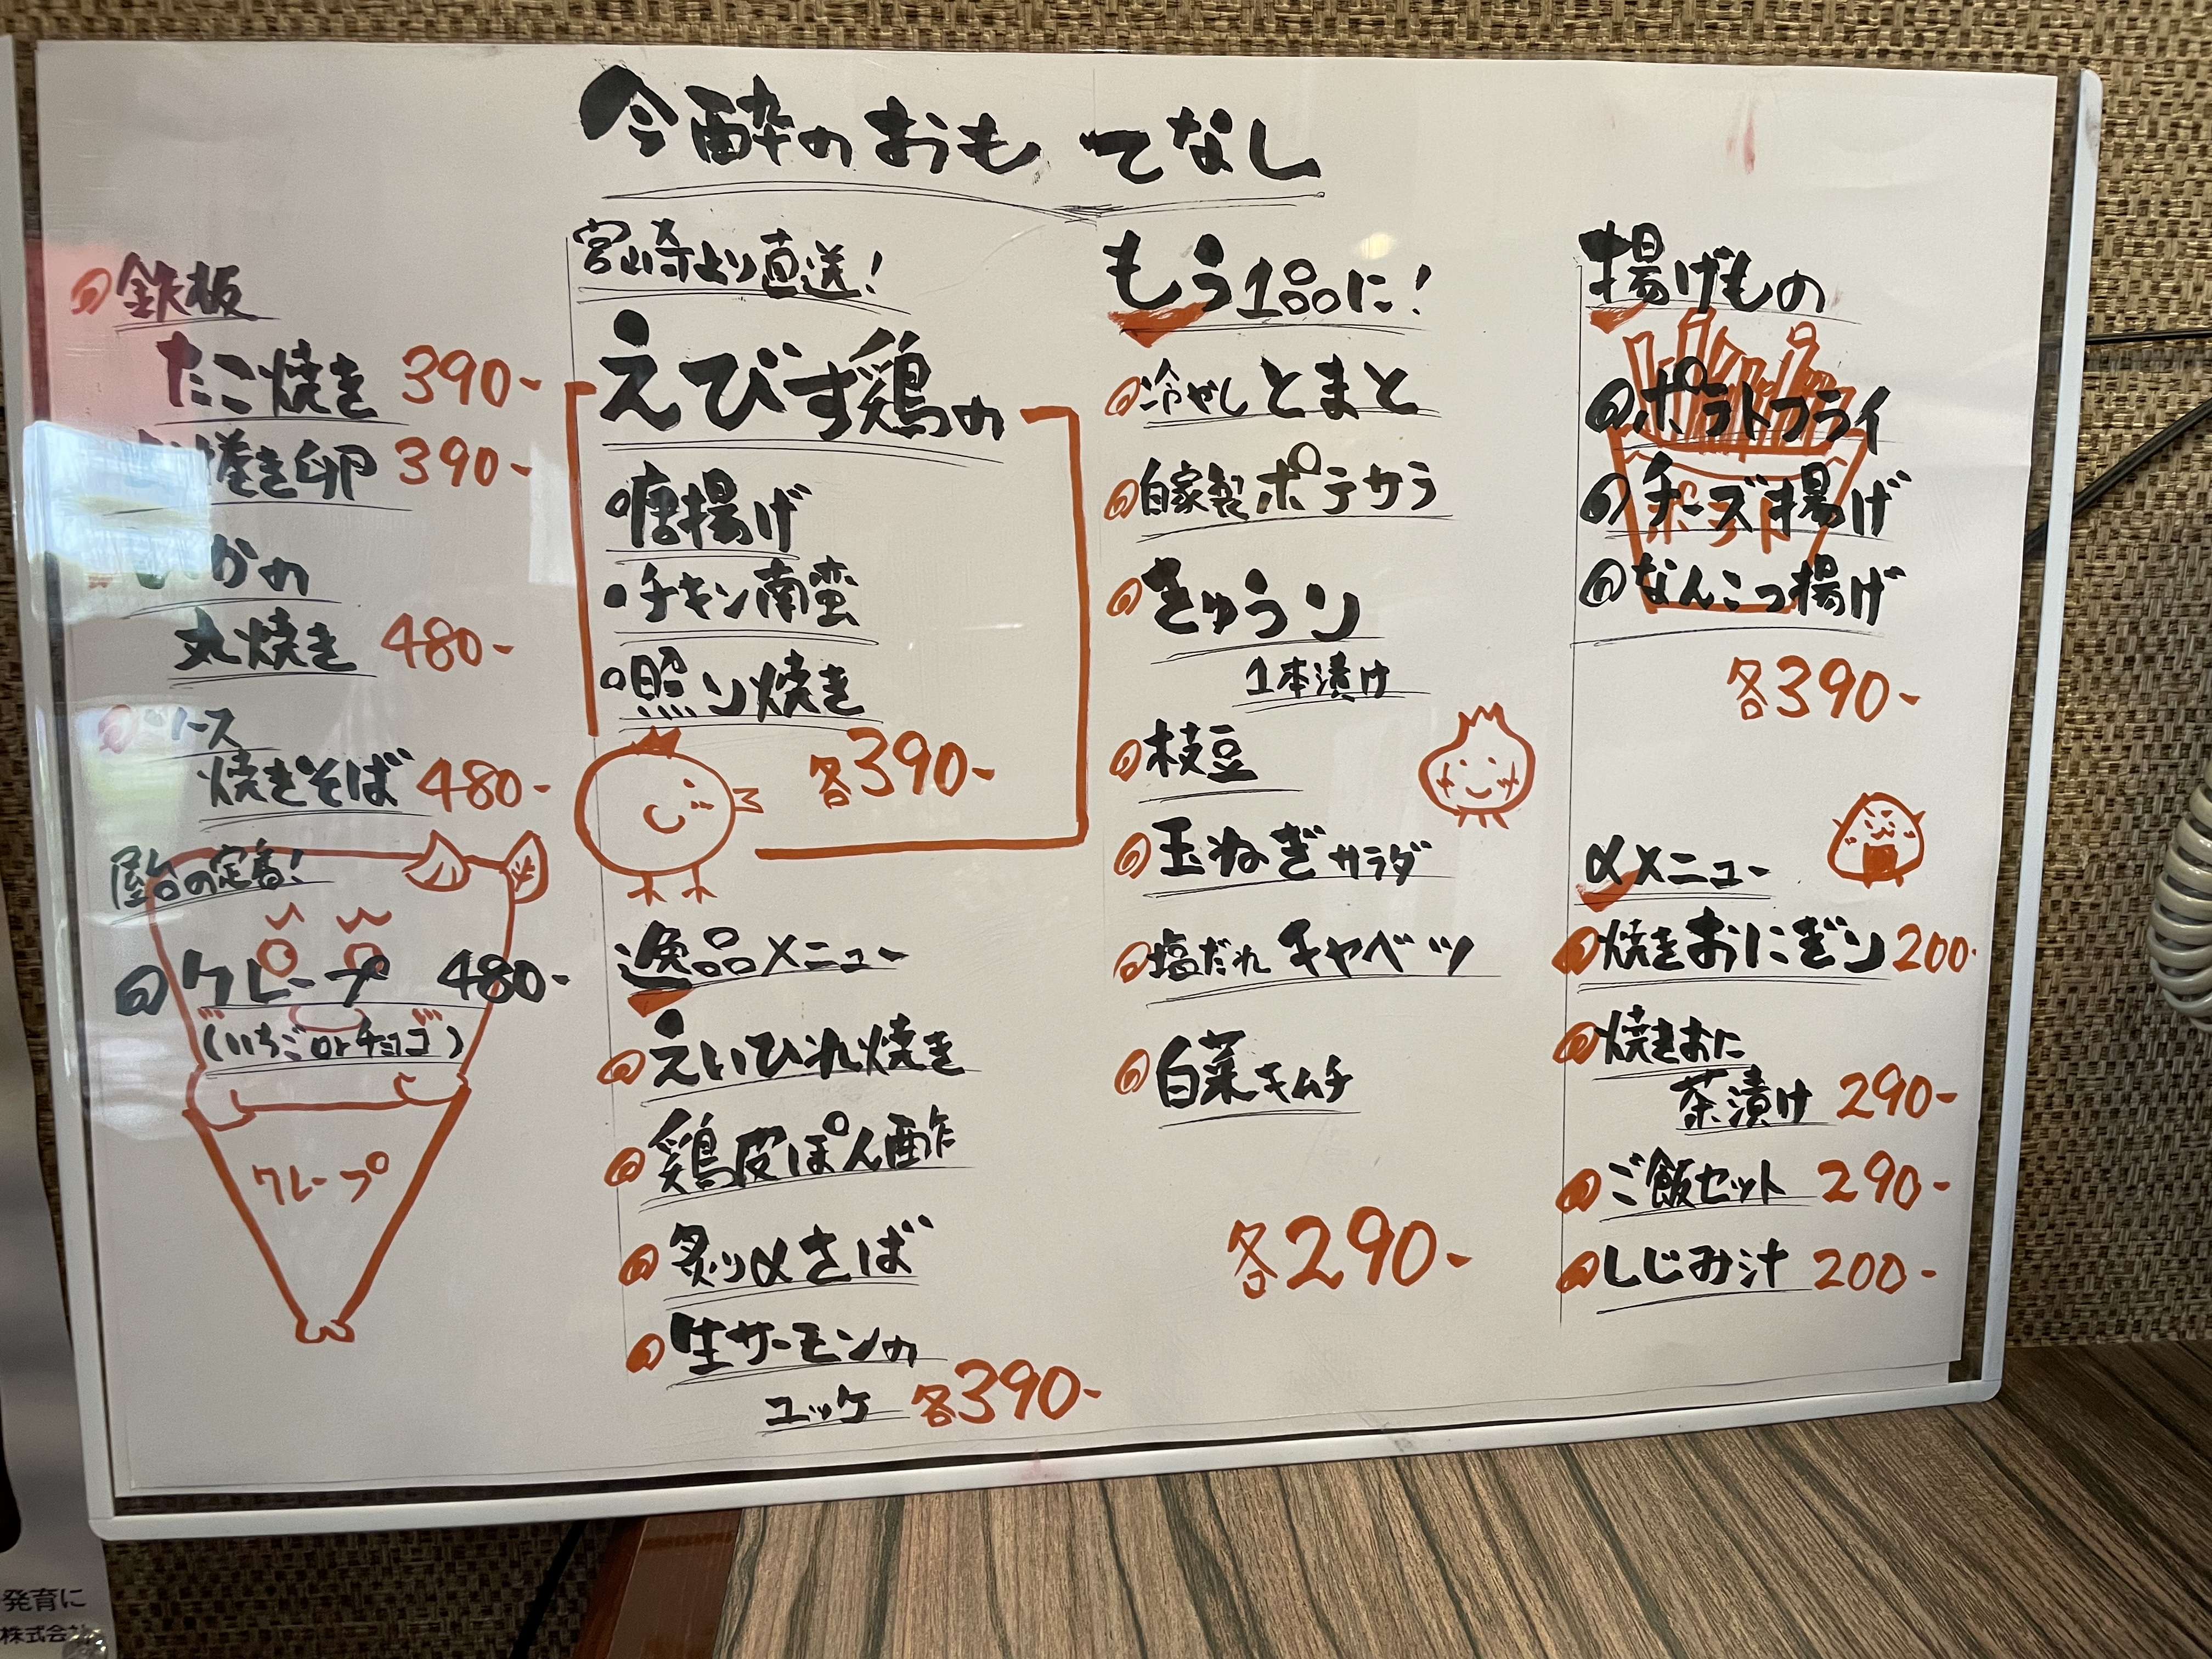 今酔のおもてなし
鉄板
たこ焼き 390-
巻き卵 390-
かの
丸焼き 480-
ソース
焼きそば 480-
屋台の定番!
クレープ 480-
(いちごorチョコ)
クレープ
宮崎より直送!
えびす鶏の
唐揚げ
チキン南蛮
照り焼き
各390-
逸品メニュー
えいひれ焼き
鶏皮ぽん酢
炙り〆さば
生サーモンの
ユッケ 各390-
もう1品に!
冷やしとまと
自家製ポテサラ
きゅうり
1本漬け
枝豆
玉ねぎサラダ
塩だれキャベツ
白菜キムチ
各290-
揚げもの
ポテトフライ
チーズ揚げ
なんこつ揚げ
各390-
〆メニュー
焼きおにぎり 200-
焼きおに
茶漬け 290-
ご飯セット 290-
しじみ汁 200-
発育に
株式会社